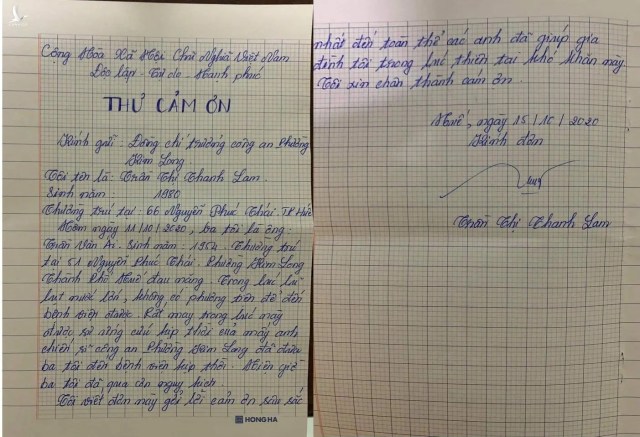 Cộng Hòa Xã Hội Chủ Nghĩa Việt Nam
Độc lập - Tự do - Hạnh phúc
THƯ CẢM ƠN
Kính gửi: Đồng chí trưởng công an Phường
Kim Long
Tôi tên là: Trần Thị Thanh Lam.
Sinh năm 1980
Thường trú tại: 66 Nguyễn Phúc Thái. TP Huế
Hôm ngày 11/10/2020, ba tôi là ông:
Trần Văn Ai. Sinh năm: 1954. Thường trú
tại 51 Nguyễn Phúc Thái. Phường Kim Long
Thành Phố Huế đau nặng. Trong lúc lũ
lụt nước lớn, không có phương tiện để đến
bệnh viện được. Rất may trong lúc này
được sự ứng cứu kịp thời của mấy anh
chiến sĩ công an Phường Kim Long đã đưa
ba tôi đến bệnh viện kịp thời. Hiện giờ
ba tôi đã qua cơn nguy kịch.
Tôi viết đơn này gởi lời cảm ơn sâu sắc
HONG HA
nhất đến toàn thể các anh đã giúp gia
đình tôi trong lúc thiên tai khó khăn này.
Tôi xin chân thành cảm ơn.
Huế, ngày 15/10/2020
Kính đơn
Trần Thị Thanh Lam